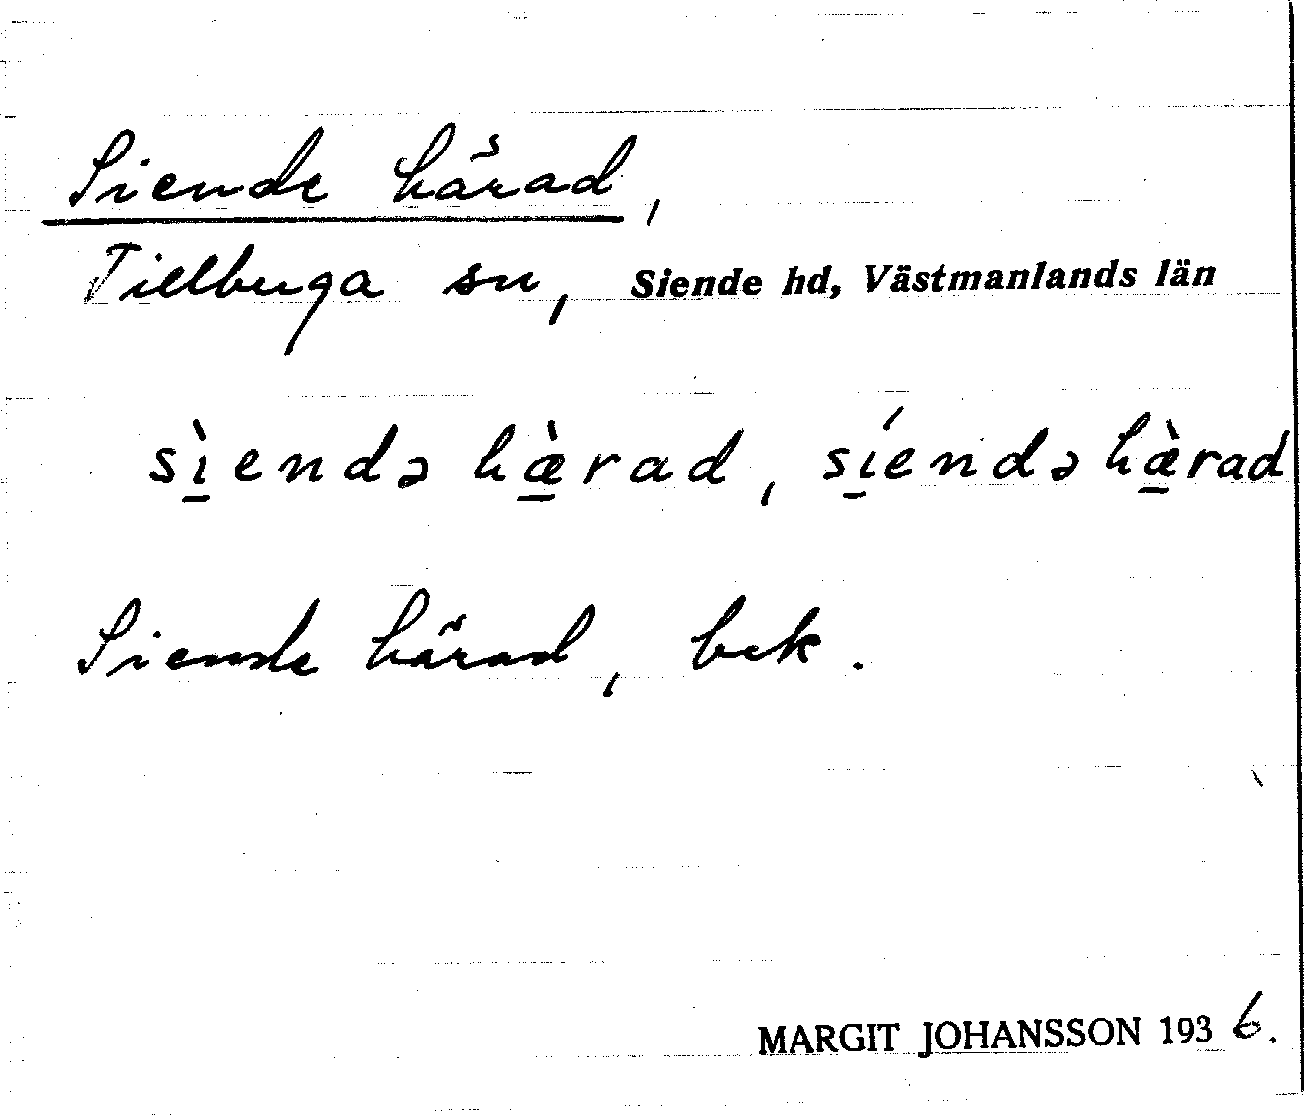 Siende härad,
Tillbuga sn, Siende hd, Västmanlands län
sì̱endə hæ̱̀rad, sí̱endə hæ̱̀rad
Siende härad, bek.
MARGIT JOHANSSON 1936.